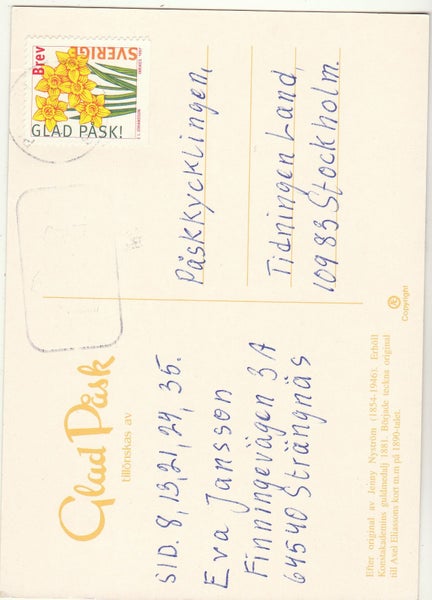 Glad Påsk
tillönskas av
SID. 8, 13, 21, 24, 35.
Eva Jansson
Finningevägen 3A
64540 Strängnäs
Efter original av Jenny Nyström (1854-1946). Erhöll
Konstakademins guldmedalj 1881. Började teckna original
till Axel Eliassons kort m.m på 1890-talet.
Brev
SVERIGE
GLAD PÅSK!
Påskkycklingen,
Tidningen Land,
10983 Stockholm.
Copyright